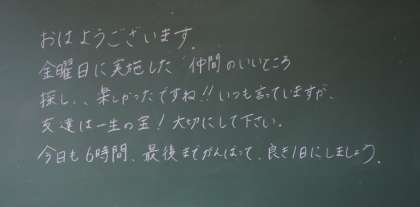 おはようございます。
金曜日に実施した 仲間のいいところ
探し、、楽しかったですね!! いつも言っていますが、
友達は一生の宝! 大切にして下さい。
今日も6時間、最後までがんばって、良き1日にしましょう。